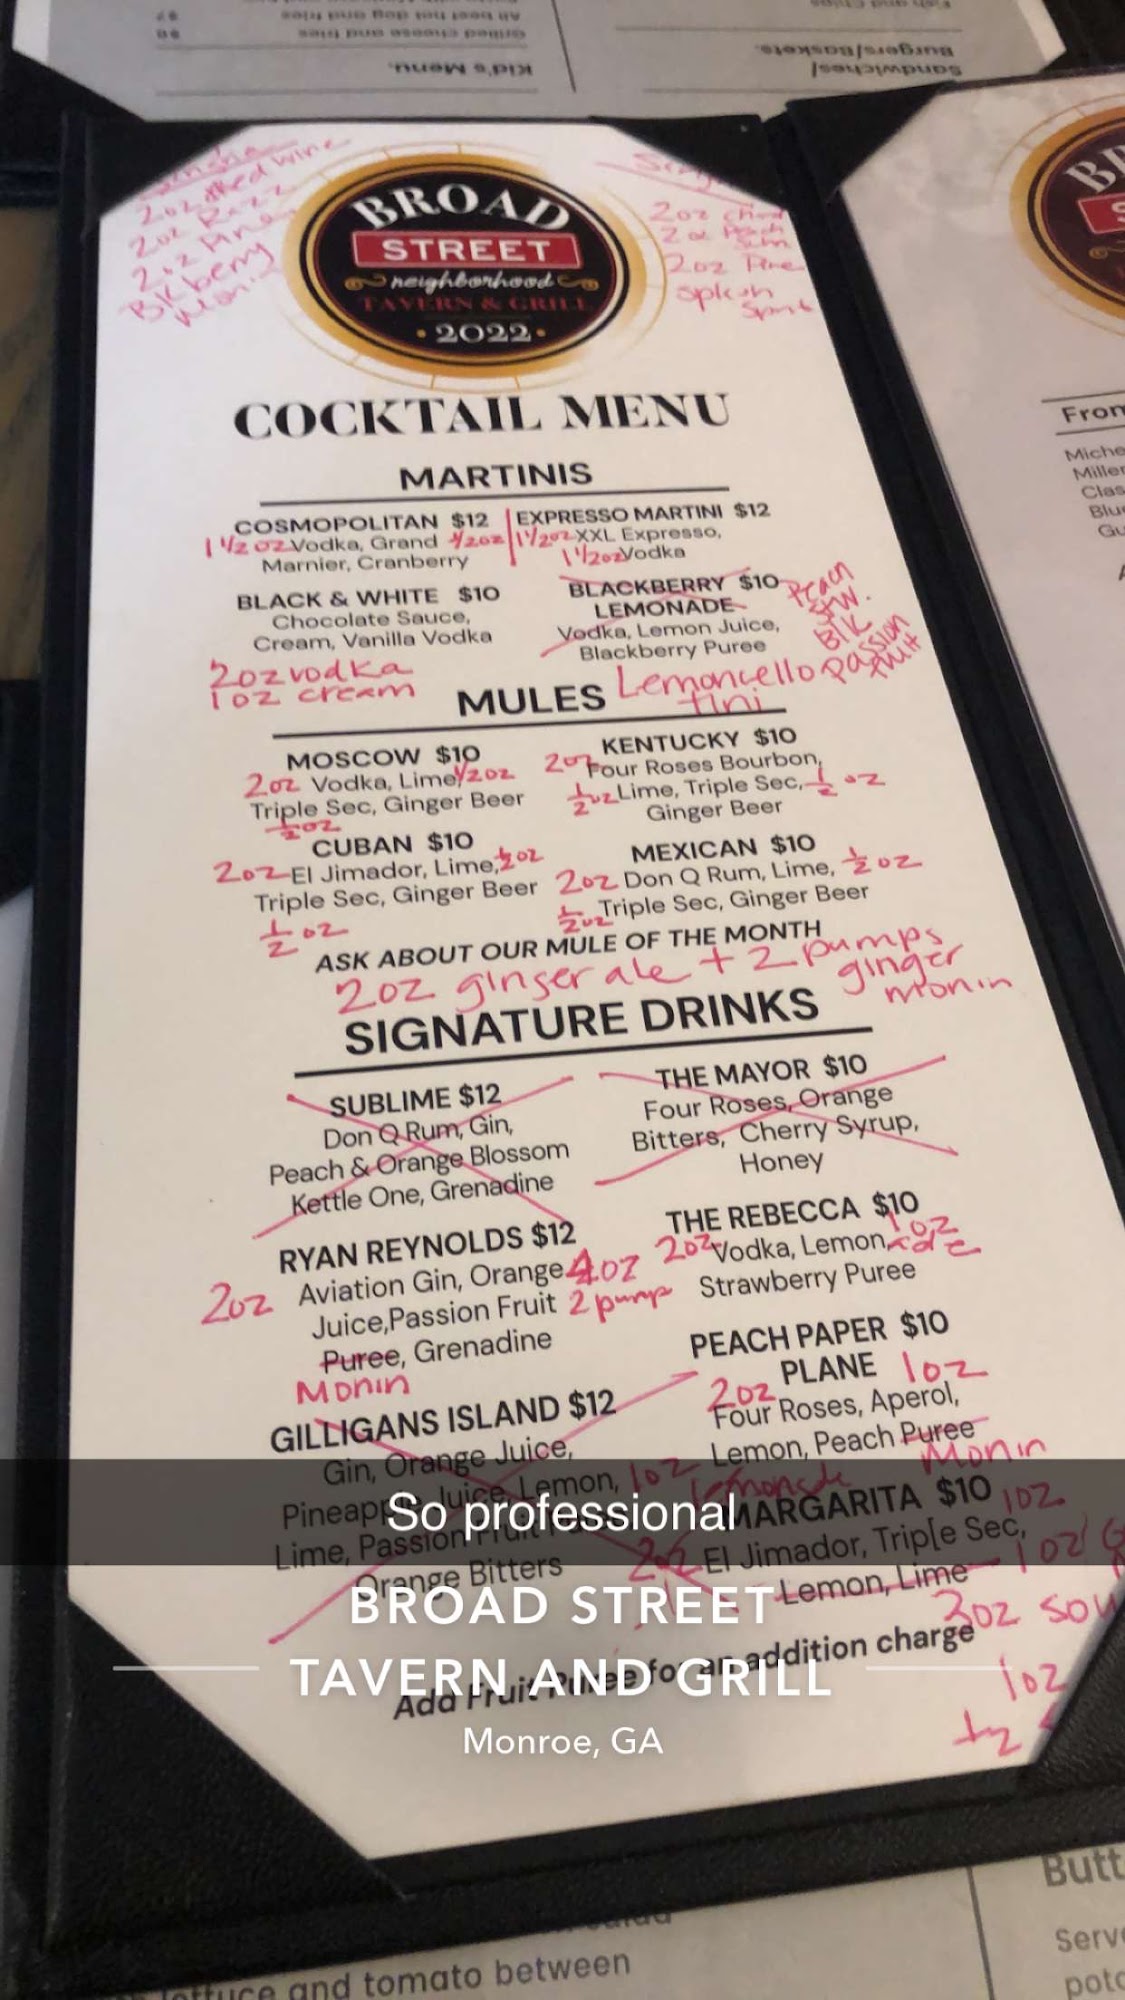 Kid's Menu.
Grilled cheese and fries
All beef hot dog and fries
Sandwiches/
Burgers/Baskets.
Fish and Chips
2oz Red wine
2oz
2oz
Blk berry
Monin
2oz
2oz Peach
2oz Pine
Splash
BROAD
STREET
neighborhood
TAVERN & GRILL
• 2022 •
COCKTAIL MENU
MARTINIS
COSMOPOLITAN $12
1 1/2 oz Vodka, Grand 1/2oz
Marnier, Cranberry
EXPRESSO MARTINI $12
1 1/2oz XXL Expresso,
1 1/2oz Vodka
BLACK & WHITE $10
Chocolate Sauce,
Cream, Vanilla Vodka
2oz vodka
1oz cream
BLACKBERRY $10
LEMONADE
Vodka, Lemon Juice,
Blackberry Puree
Peach
Stw.
Blk
passion
fruit
Lemoncello
tini
MULES
MOSCOW $10
2oz Vodka, Lime, 1/2oz
Triple Sec, Ginger Beer
1/2oz
KENTUCKY $10
2oz Four Roses Bourbon,
1/2oz Lime, Triple Sec, 1/2 oz
Ginger Beer
CUBAN $10
2oz El Jimador, Lime, 1/2oz
Triple Sec, Ginger Beer
1/2 oz
MEXICAN $10
2oz Don Q Rum, Lime, 1/2 oz
1/2oz Triple Sec, Ginger Beer
ASK ABOUT OUR MULE OF THE MONTH
2oz ginger ale + 2 pumps
ginger
monin
SIGNATURE DRINKS
SUBLIME $12
Don Q Rum, Gin,
Peach & Orange Blossom
Kettle One, Grenadine
THE MAYOR $10
Four Roses, Orange
Bitters, Cherry Syrup,
Honey
RYAN REYNOLDS $12
2oz Aviation Gin, Orange 4oz
Juice,Passion Fruit 2 pump
Puree, Grenadine
Monin
THE REBECCA $10
2oz Vodka, Lemon, 1oz
Strawberry Puree
PEACH PAPER $10
PLANE 1oz
2oz Four Roses, Aperol,
Lemon, Peach Puree
1oz lemonade Monin
GILLIGANS ISLAND $12
Gin, Orange Juice,
Pineapple Juice, Lemon,
Lime, Passion Fruit
Orange Bitters
MARGARITA $10 1oz
2oz El Jimador, Triple Sec,
Lemon, Lime 1oz
3oz
Add Fruit Puree for an addition charge
1oz
So professional
BROAD STREET
TAVERN AND GRILL
Monroe, GA
From
Miche
Miller
Clas
Blu
Gu
Butt
Serve
potc
lettuce and tomato between